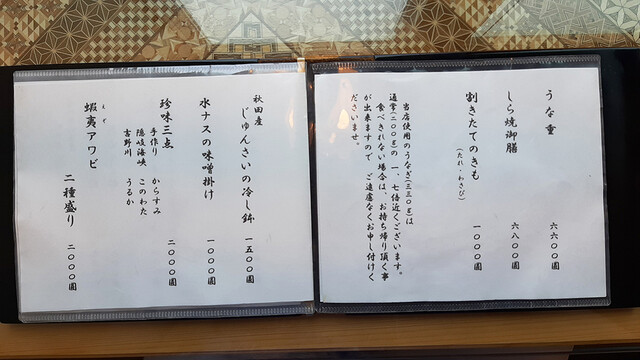 うな重 六六〇〇圓
しら焼御膳 六八〇〇圓
割きたてのきも（たれ・わさび） 一〇〇〇圓
当店使用のうなぎ(三三〇g)は
通常(二〇〇g)の 一、七倍近くございます。
食べきれない場合は、お持ち帰り頂く事
が出来ますので ご遠慮なくお申し付けく
ださいませ。
秋田産
じゅんさいの冷し鉢 一五〇〇圓
水ナスの味噌掛け 一〇〇〇圓
珍味三点 二〇〇〇圓
手作り からすみ
隠岐海峡 このわた
吉野川 うるか
えぞ
蝦夷アワビ 二種盛り 二〇〇〇圓